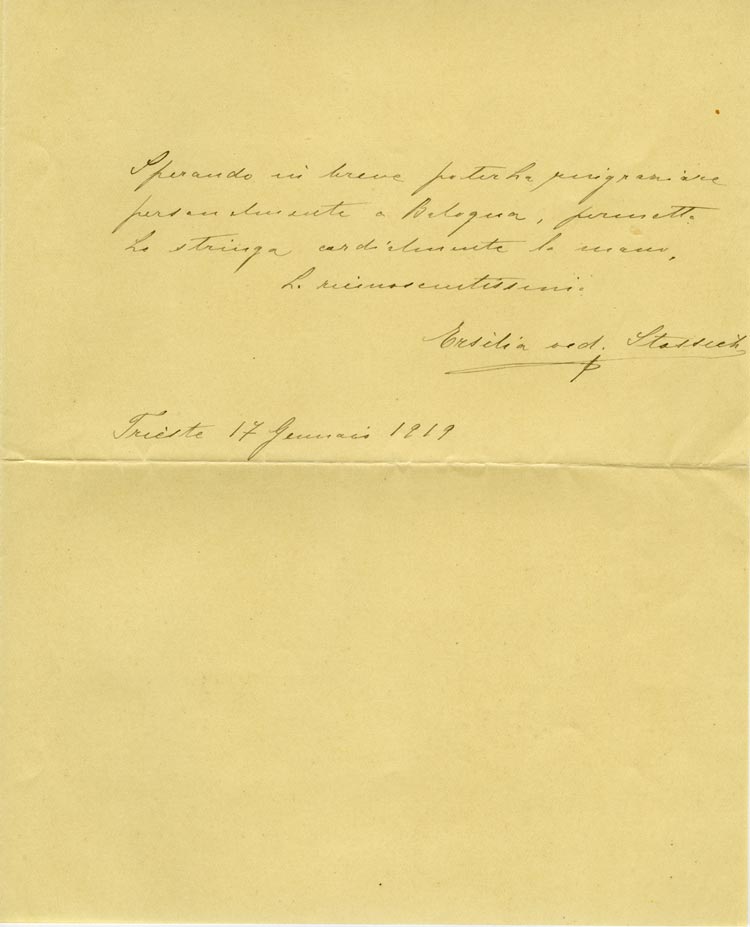 Sperando in breve poterLa ringraziare
personalmente a Bologna, permetta
Le stringa cordialmente la mano,
La riconoscentissima
Ersilia ved. Stossich
Trieste 17 Gennaio 1919